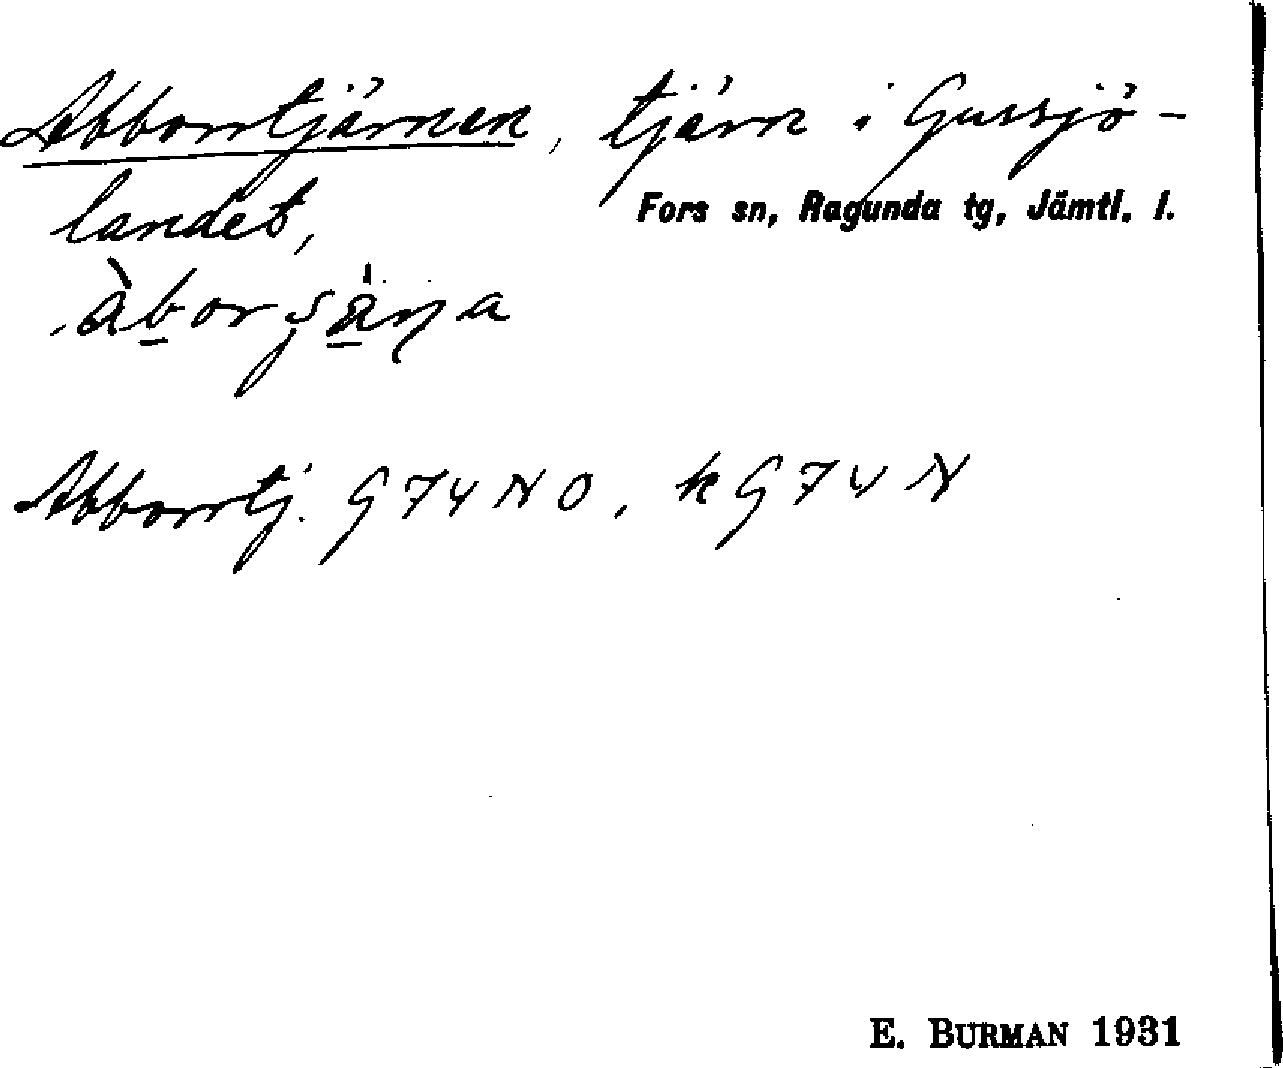 Abborrtjärnen, tjärn i Gussjö-
landet,
Fors sn, Ragunda tg, Jämtl. l.
Abborrtj. G74NO, kG74N
E. BURMAN 1931